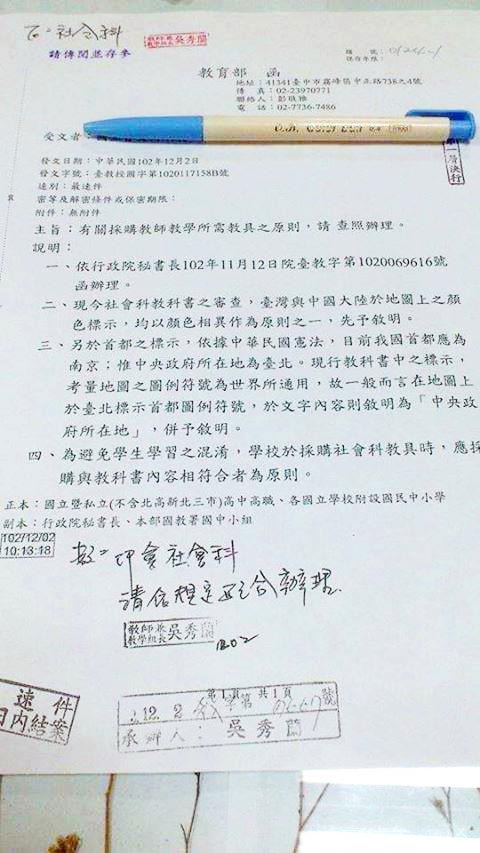 To=社會科
請傳閱並存參
教師兼
教學組長 吳秀蘭
檔 號：
保存年限：
教育部 函
地址：41341臺中市霧峰區中正路738之4號
傳 真：02-23970771
聯絡人：彭
電 話：02-7736-7486
受文者：
第一層決行
發文日期：中華民國102年12月2日
發文字號：臺教授國字第1020117158B號
速別：最速件
密等及解密條件或保密期限：
附件：無附件
主旨：有關採購教師教學所需教具之原則，請 查照辦理。
說明：
一、依行政院秘書長102年11月12日院臺教字第1020069616號
函辦理。
二、現今社會科教科書之審查，臺灣與中國大陸於地圖上之顏
色標示，均以顏色相異作為原則之一，先予敘明。
三、另於首都之標示，依據中華民國憲法，目前我國首都應為
南京；惟中央政府所在地為臺北。現行教科書中之標示，
考量地圖之圖例符號為世界所通用，故一般而言在地圖上
於臺北標示首都圖例符號，於文字內容則敘明為「中央政
府所在地」，併予敘明。
四、為避免學生學習之混淆，學校於採購社會科教具時，應採
購與教科書內容相符合者為原則。
正本：國立暨私立(不含北高新北三市)高中高職、各國立學校附設國民中小學
副本：行政院秘書長、本部國教署國中小組
102/12/02
10:13:18
社會科
請依規定配合辦理
教師兼
教學組長 吳秀蘭
1202
第1頁 共1頁
12. 2 字第 號
承辦人： 吳秀蘭
速 件
日內結案